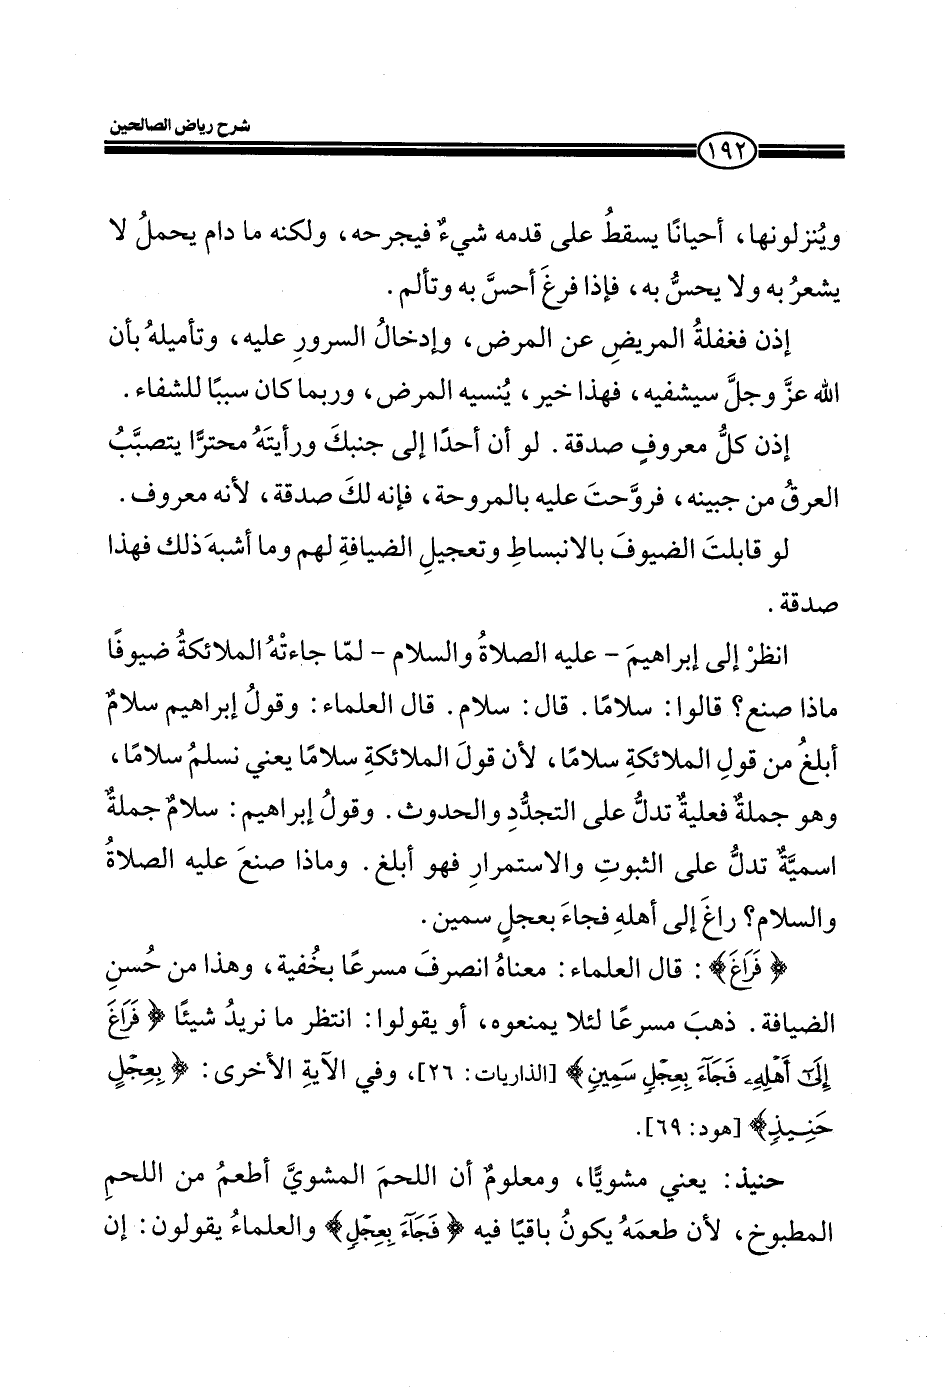 شرح رياض الصالحين
١٩٢
ويُنزلونها، أحيانًا يسقطُ على قدمه شيءٌ فيجرحه، ولكنه ما دام يحملُ لا
يشعرُ به ولا يحسُّ به، فإذا فرغَ أحسَّ به وتألم.
إذن فغفلةُ المريضِ عن المرض، وإدخالُ السرورِ عليه، وتأميلهُ بأن
الله عزَّ وجلَّ سيشفيه، فهذا خير، يُنسيه المرض، وربما كان سببًا للشفاء.
إذن كلُّ معروفٍ صدقة. لو أن أحدًا إلى جنبكَ ورأيتَهُ محترًّا يتصبَّبُ
العرقُ من جبينه، فروَّحتَ عليه بالمروحة، فإنه لكَ صدقة، لأنه معروف.
لو قابلتَ الضيوفَ بالانبساطِ وتعجيلِ الضيافةِ لهم وما أشبهَ ذلك فهذا
صدقة.
انظرْ إلى إبراهيمَ - عليه الصلاةُ والسلام - لمّا جاءتْهُ الملائكةُ ضيوفًا
ماذا صنع؟ قالوا: سلامًا. قال: سلام. قال العلماء: وقولُ إبراهيم سلامٌ
أبلغُ من قولِ الملائكةِ سلامًا، لأن قولَ الملائكةِ سلامًا يعني نسلمُ سلامًا،
وهو جملةٌ فعليةٌ تدلُّ على التجدُّدِ والحدوث. وقولُ إبراهيم: سلامٌ جملةٌ
اسميَّةٌ تدلُّ على الثبوتِ والاستمرارِ فهو أبلغ. وماذا صنعَ عليه الصلاةُ
والسلام؟ راغَ إلى أهلهِ فجاءَ بعجلٍ سمين.
﴿فَرَاغَ﴾: قال العلماء: معناهُ انصرفَ مسرعًا بخُفية، وهذا من حُسنِ
الضيافة. ذهبَ مسرعًا لئلا يمنعوه، أو يقولوا: انتظر ما نريدُ شيئًا ﴿فَرَاغَ
إِلَىٰٓ أَهْلِهِۦ فَجَآءَ بِعِجْلٍ سَمِينٍ﴾ [الذاريات: ٢٦]، وفي الآيةِ الأخرى: ﴿بِعِجْلٍ
حَنِيذٍ﴾ [هود: ٦٩].
حنيذ: يعني مشويًّا، ومعلومٌ أن اللحمَ المشويَّ أطعمُ من اللحمِ
المطبوخ، لأن طعمَهُ يكونُ باقيًا فيه ﴿فَجَآءَ بِعِجْلٍ﴾ والعلماءُ يقولون: إن